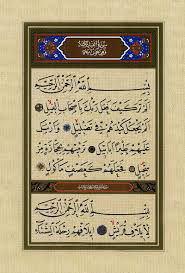 سورة الفيل
بِسْمِ اللَّهِ الرَّحْمَٰنِ الرَّحِيمِ
أَلَمْ تَرَ كَيْفَ فَعَلَ رَبُّكَ بِأَصْحَابِ الْفِيلِ
أَلَمْ يَجْعَلْ كَيْدَهُمْ فِي تَضْلِيلٍ وَأَرْسَلَ
عَلَيْهِمْ طَيْرًا أَبَابِيلَ تَرْمِيهِمْ بِحِجَارَةٍ مِنْ
سِجِّيلٍ فَجَعَلَهُمْ كَعَصْفٍ مَأْكُولٍ
بِسْمِ اللَّهِ الرَّحْمَٰنِ الرَّحِيمِ
لِإِيلَافِ قُرَيْشٍ إِيلَافِهِمْ رِحْلَةَ الشِّتَاءِ